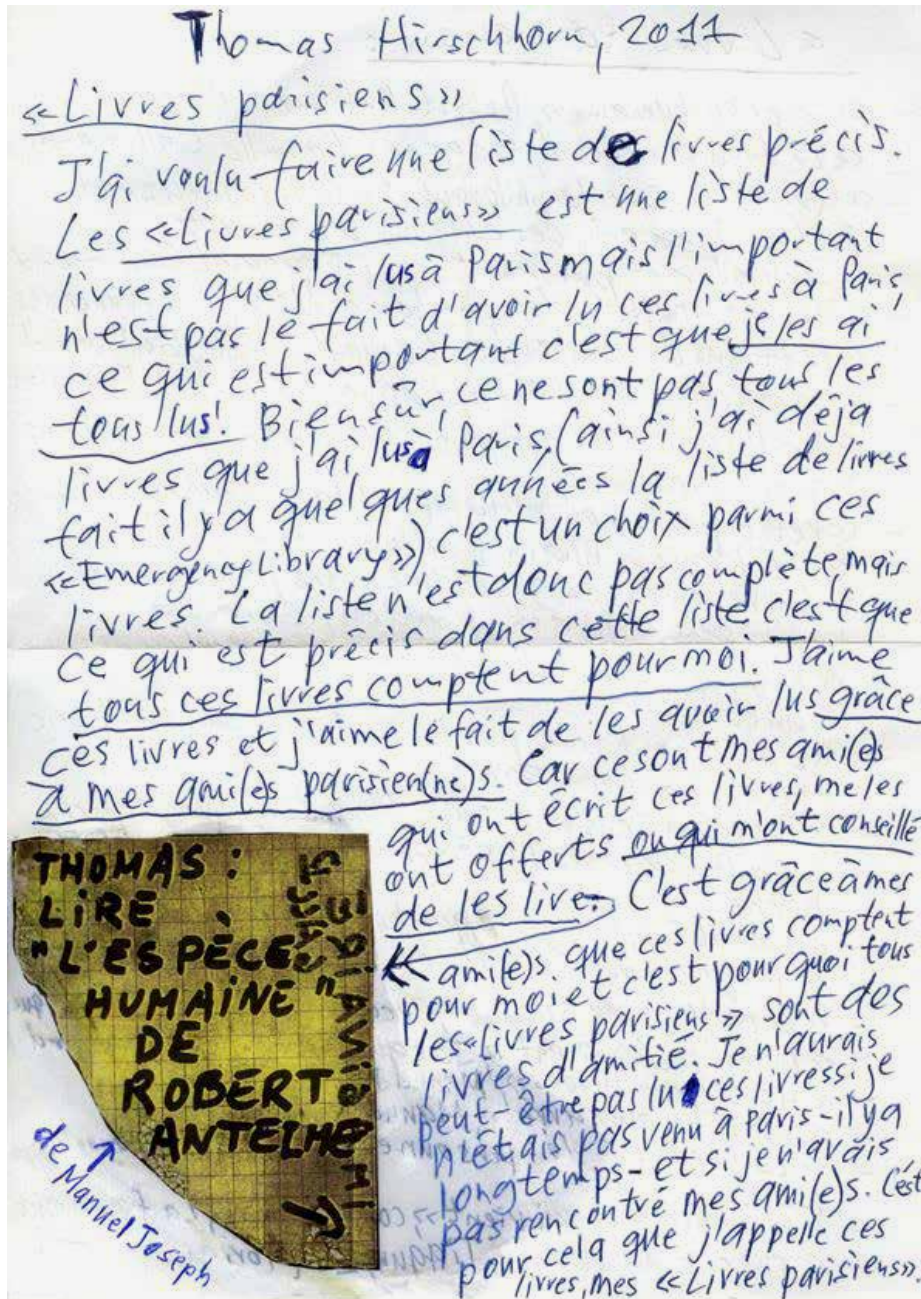 Thomas Hirschhorn, 2011
«Livres parisiens»
J'ai voulu faire une liste des livres précis.
Les «Livres parisiens» est une liste de
livres que j'ai lus à Paris mais l'important
n'est pas le fait d'avoir lu ces livres à Paris,
ce qui est important c'est que je les ai
tous lus! Bien sûr, ce ne sont pas tous les
livres que j'ai lus à Paris, (ainsi j'ai déja
fait il y a quelques années la liste de livres
«Emergency Library») c'est un choix parmi ces
livres. La liste n'est donc pas complète, mais
ce qui est précis dans cette liste c'est que
tous ces livres comptent pour moi. J'aime
ces livres et j'aime le fait de les avoir lus grâce
à mes ami(e)s parisien(ne)s. Car ce sont mes ami(e)s
qui ont écrit ces livres, me les
ont offerts ou qui m'ont conseillé
de les lire. C'est grâce à mes
ami(e)s que ces livres comptent
pour moi et c'est pourquoi tous
les «Livres parisiens» sont des
livres d'amitié. Je n'aurais
peut-être pas lu ces livres si je
n'étais pas venu à Paris - il y a
longtemps - et si je n'avais
pas rencontré mes ami(e)s. C'est
pour cela que j'appelle ces
livres, mes «Livres parisiens».
THOMAS :
LIRE
"L'ESPÈCE
HUMAINE"
DE
ROBERT
ANTELME
de Manuel Joseph